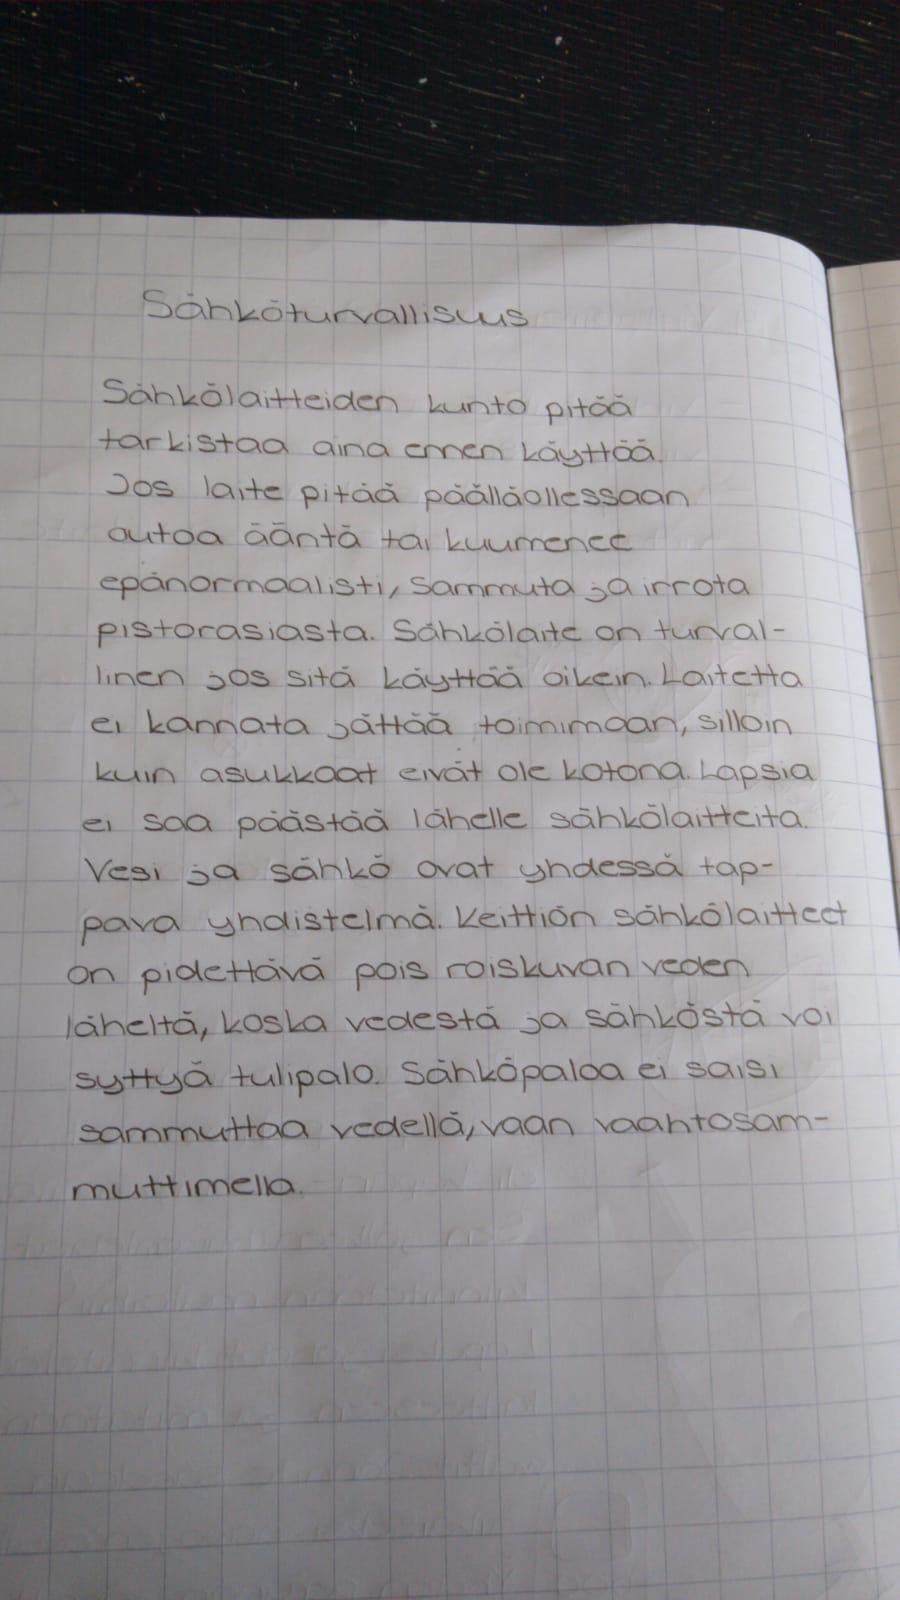 Sähköturvallisuus
Sähkölaitteiden kunto pitää
tarkistaa aina ennen käyttöä.
Jos laite pitää päälläollessaan
outoa ääntä tai kuumenee
epänormaalisti, sammuta ja irrota
pistorasiasta. Sähkölaite on turval-
linen jos sitä käyttää oikein. Laitetta
ei kannata jättää toimimaan, silloin
kuin asukkaat eivät ole kotona. Lapsia
ei saa päästää lähelle sähkölaitteita.
Vesi ja sähkö ovat yhdessä tap-
pava yhdistelmä. Keittiön sähkölaitteet
on pidettävä pois roiskuvan veden
läheltä, koska vedestä ja sähköstä voi
syttyä tulipalo. Sähköpaloa ei saisi
sammuttaa vedellä, vaan vaahtosam-
muttimella.